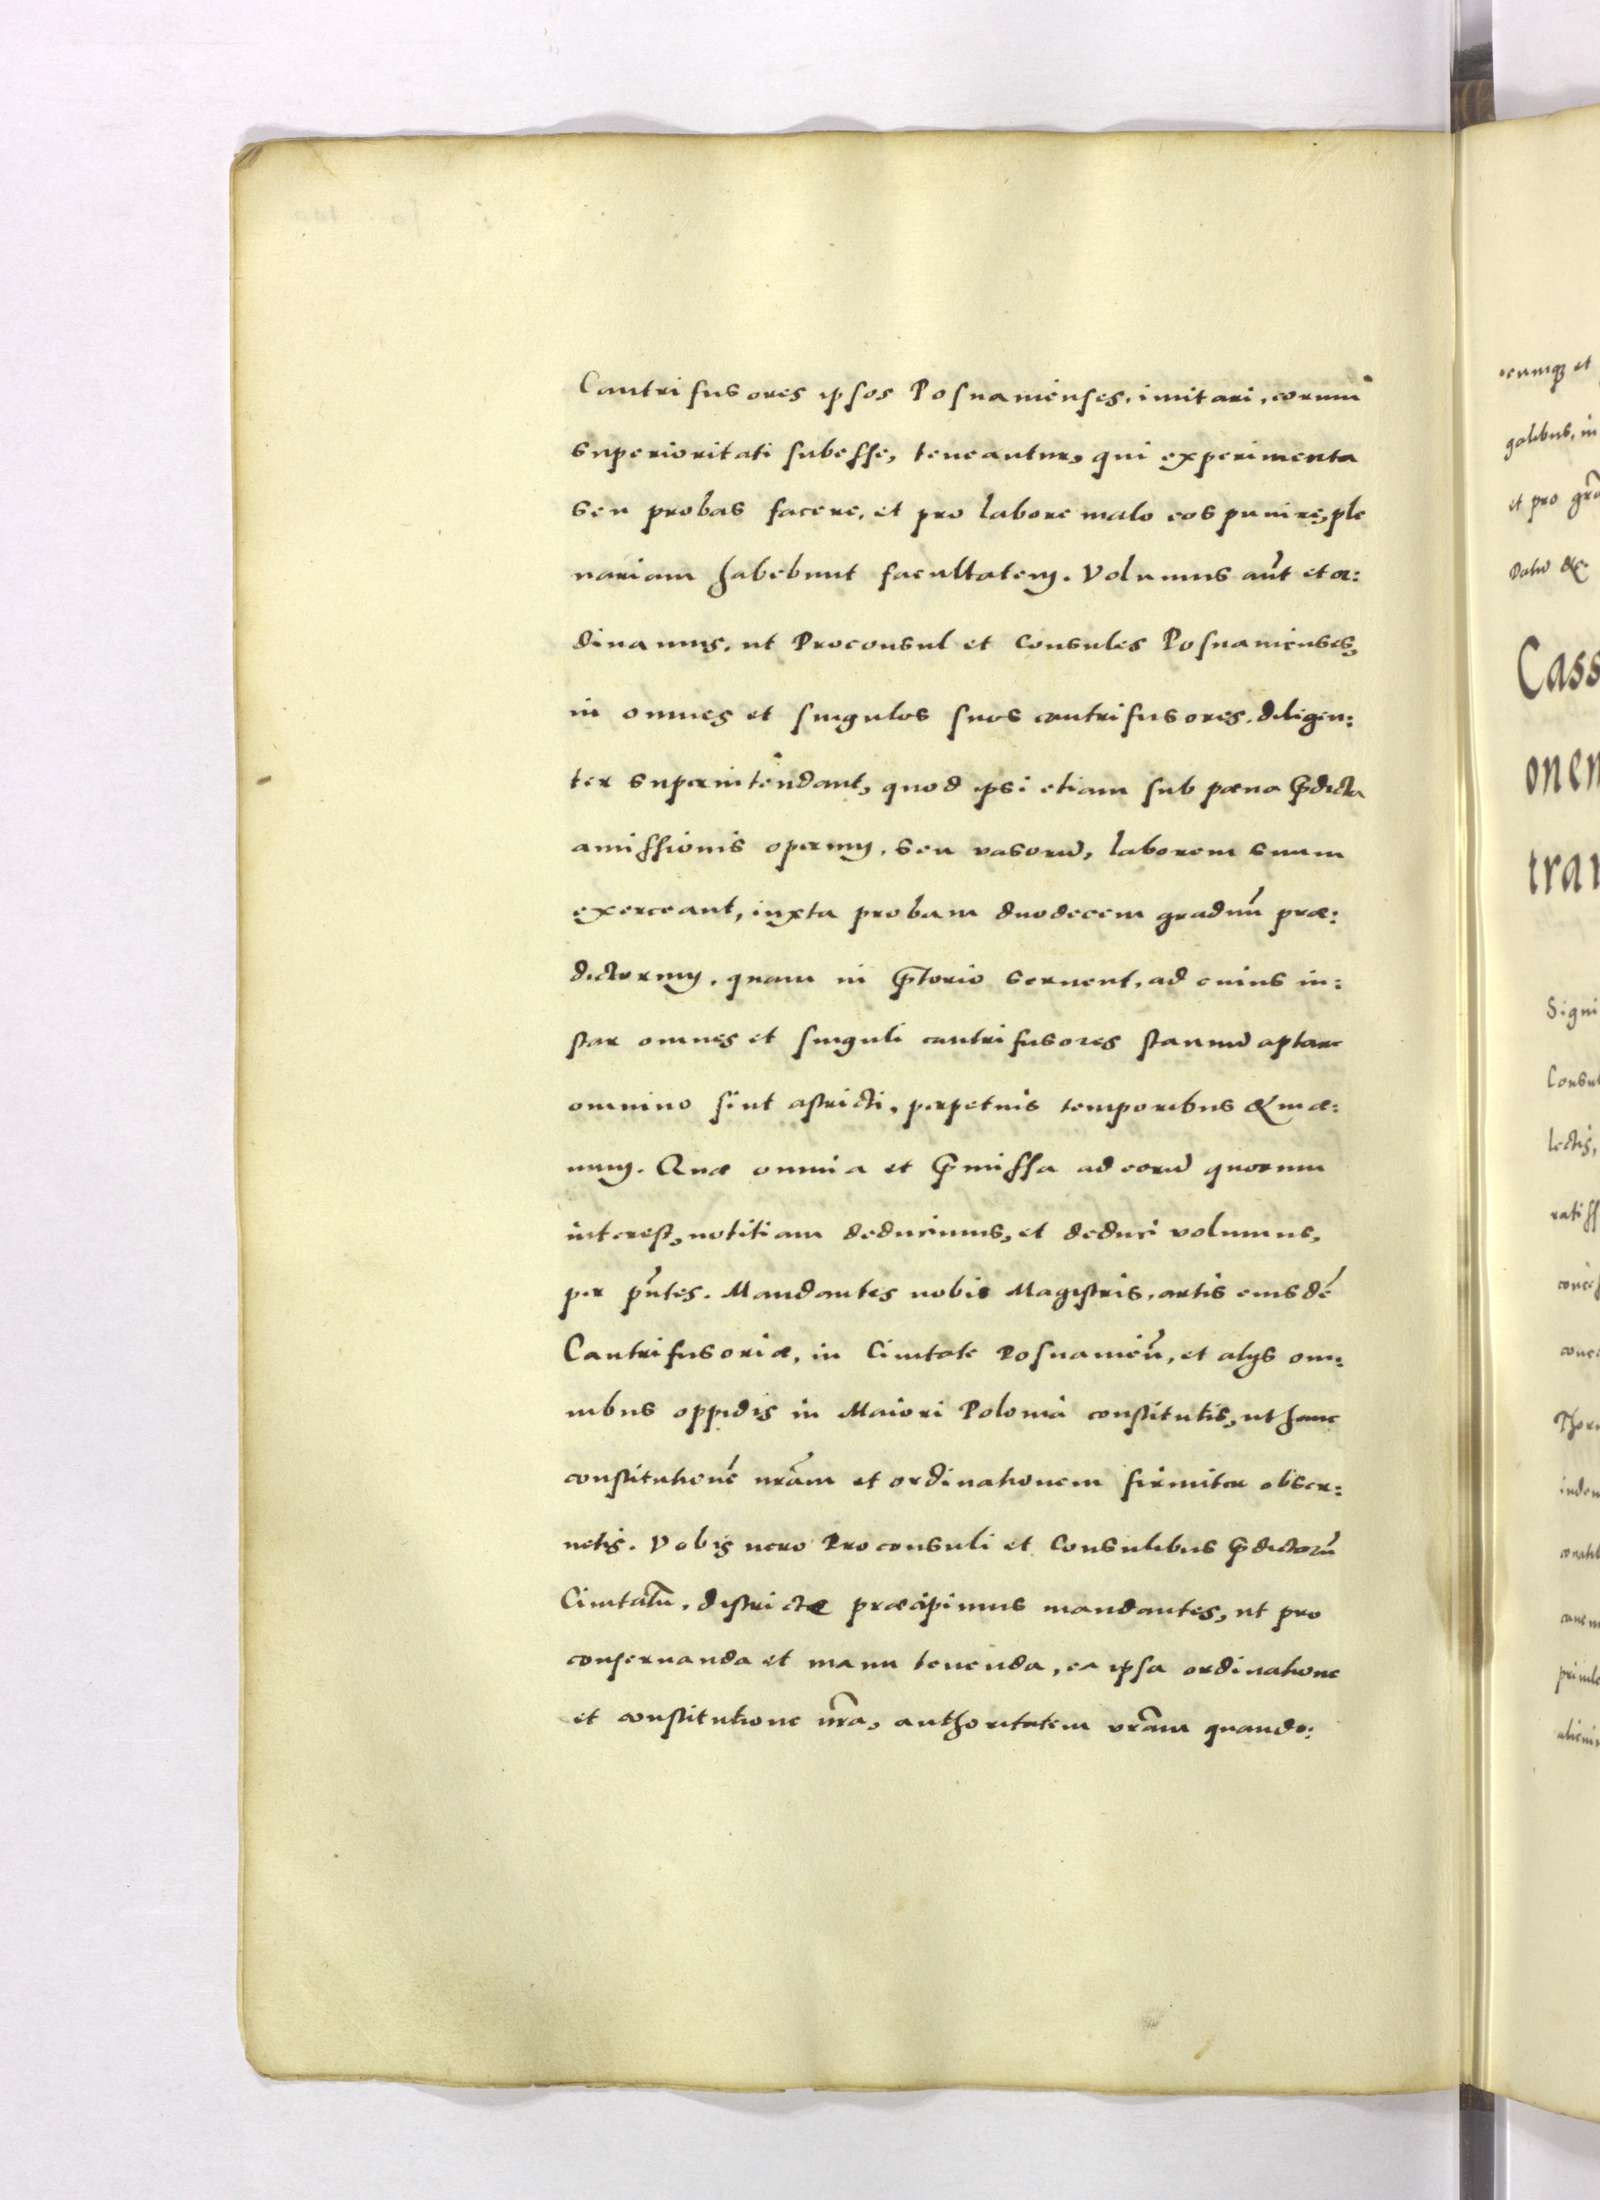 Cantrifusores ipsos Posnanienses, imitari, eorum
superioritati subesse, teneantur, qui experimenta
seu probas facere, et pro labore malo eos punire, ple
nariam habebunt facultatem. Volumus aut̃ et or:
dinamus, ut Proconsul et Consules Posnanienses,
in omnes et singulos suos cantrifusores, diligen:
ter superintendant, quod ipsi etiam sub pœna p̃dicta
amissionis operum, seu vasorũ, laborem suum
exerceant, iuxta probam duodecem graduũ præ:
dictorum, quam in p̃torio seruent, ad cuius in:
star omnes et singuli cantrifusores stannũ aptare
omnino sint astricti, perpetuis temporibus & in æ:
uum. Quæ omnia et p̃missa ad eorũ quorum
interest, notitiam deducimus, et deduci volumus,
per pñtes. Mandantes uobis Magistris, artis eiusdẽ
Cantrifusoriæ, in Ciuitate Posnanieñ, et alijs om:
nibus oppidis in Maiori Polonia constitutis, ut hanc
constitutionẽ nr̃am et ordinationem firmiter obser:
uetis. Vobis uero Proconsuli et Consulibus p̃dictarũ
Ciuitatũ, districte præcipimus mandantes, ut pro
conseruanda et manu tenenda, ea ipsa ordinatione
et constitutione nr̃a, authoritatem vr̃am quando:
cumq; et
galibus, in
et pro
&c.
Cass
onem
tra
Signi
Consul
lectis,